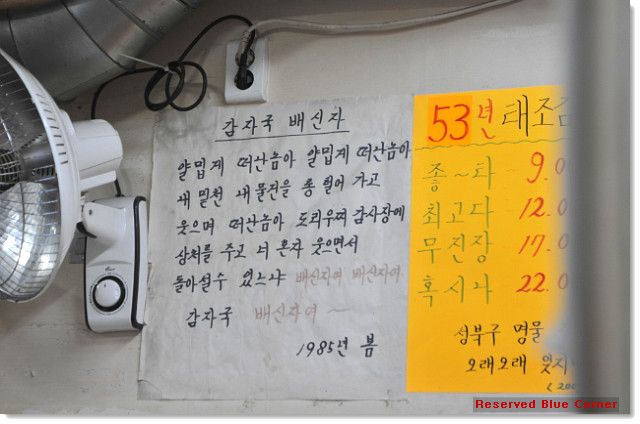 감자국 배신자
얄밉게 떠산놈아 얄밉게 떠산놈아
내 밑천 내 물건을 통 털어 가고
웃으며 떠산놈아 도리우찌 감사장에
상처를 주고 너 혼자 웃으면서
돌아설수 있느냐 배신자여 배신자여
감자국 배신자여 ~
1985년 봄
53년 태조
좋~타 9.0
최고다 12.0
무진장 17.0
혹시나 22.0
성북구 명물
오래오래 잊지
Reserved Blue Corner